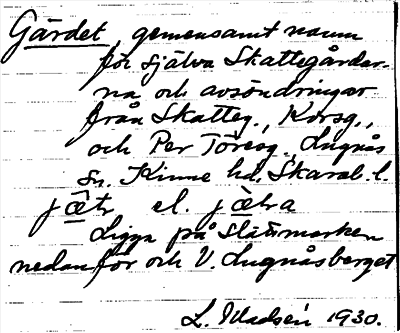 Gärdet, gemensamt namn
för själva Skattegårdar-
na och avsöndringar
från Skatteg., Korsg.,
och Per Töresg., Lugnås
sn. Kinne hd. Skarab. l.
jæ̂tr el. jæ̀tra
Ligga på slättmarken
nedanför och V. Lugnåsberget
L. 1930.